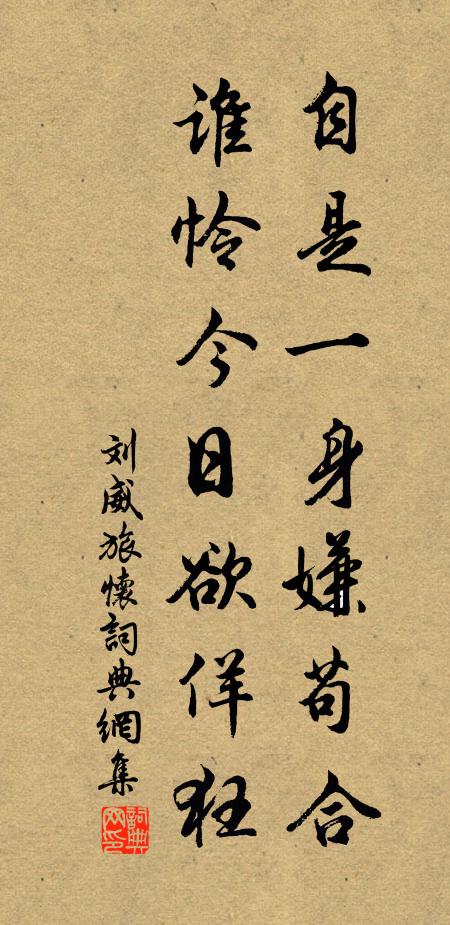 自是一身嫌苟合
谁怜今日欲佯狂
刘威旅懷詞典網集
詞典网印